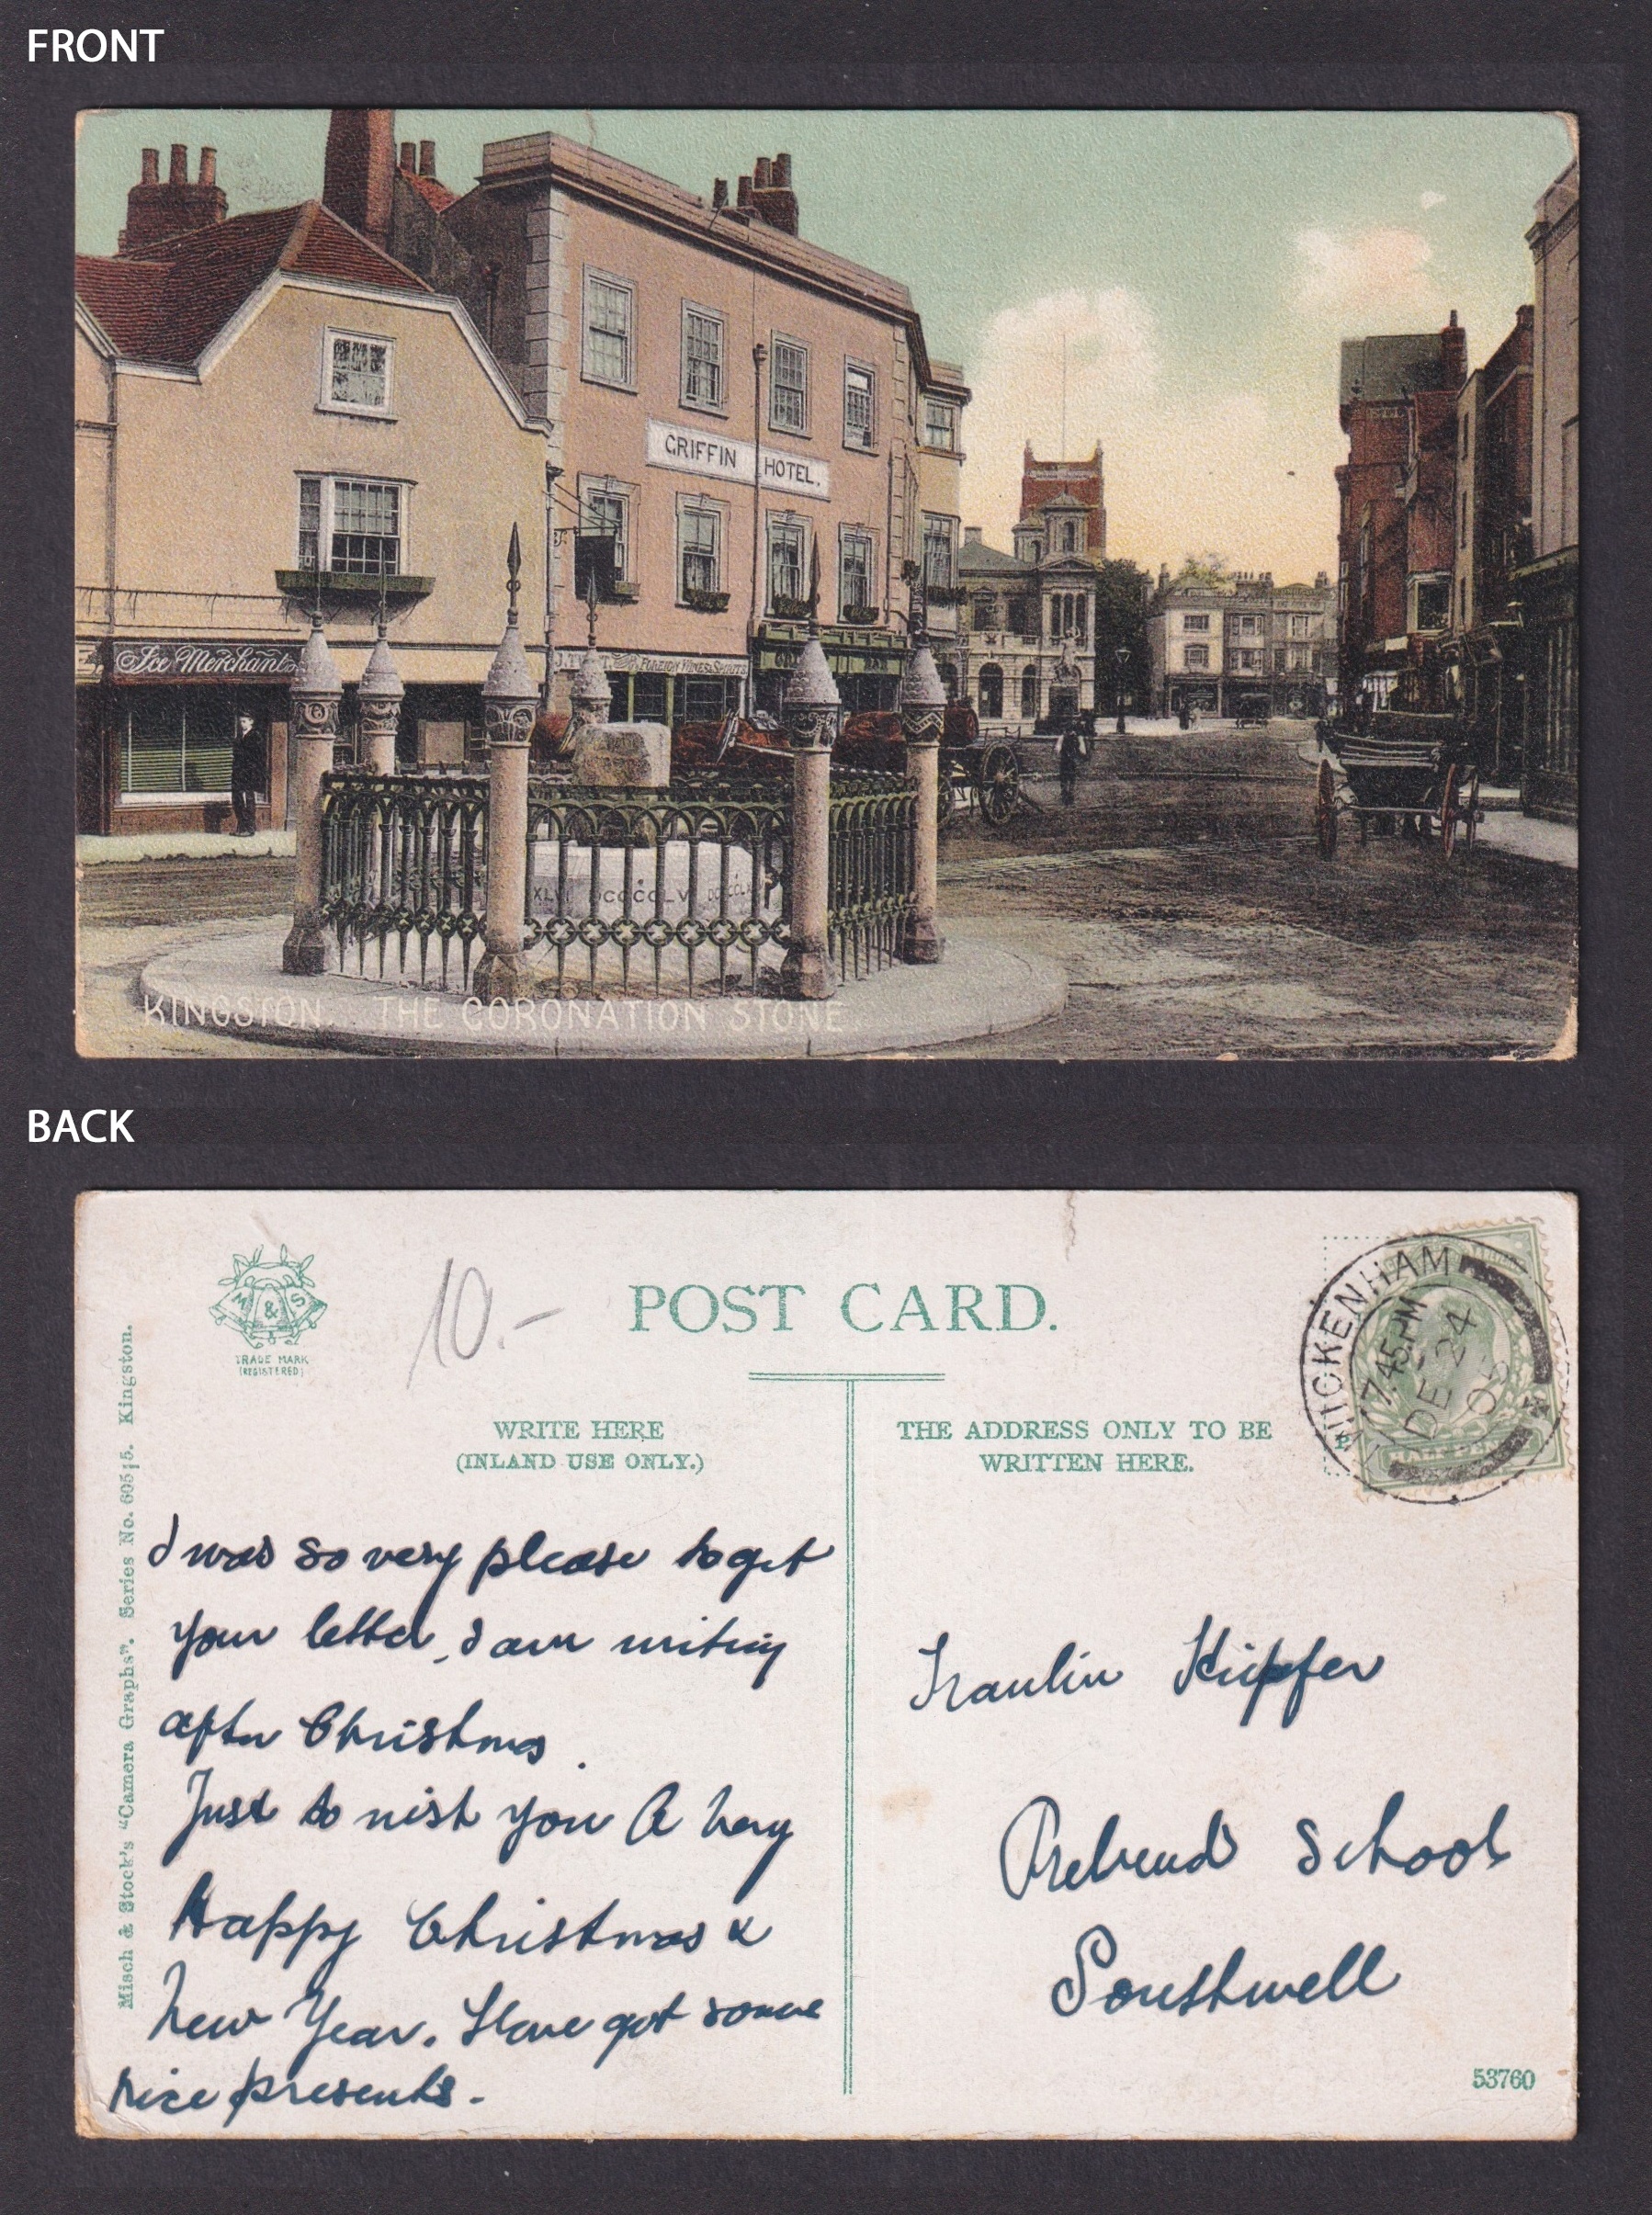 FRONT
GRIFFIN HOTEL.
Ice Merchant
FOREIGN WINES & SPIRITS
KINGSTON. THE CORONATION STONE
BACK
M & S
TRADE MARK
(REGISTERED)
10.-
POST CARD.
TWICKENHAM
7.45.PM
DE 24
05
Misch & Stock's "Camera Graphs". Series No. 605/5. Kingston.
WRITE HERE
(INLAND USE ONLY.)
THE ADDRESS ONLY TO BE
WRITTEN HERE.
I was so very please to get
your letter, I am writing
after Christmas.
Just to wish you A Very
Happy Christmas &
New Year. Have got some
nice presents.
Fraulin Küpfer
Prebend School
Southwell
53760